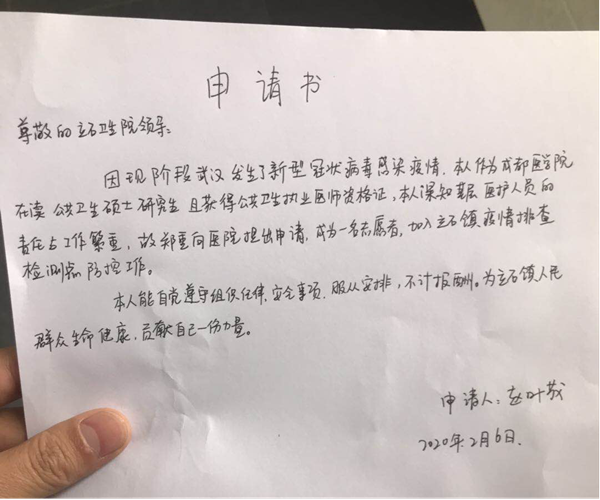 申请书
尊敬的立石卫生院领导:
因现阶段武汉发生了新型冠状病毒感染疫情.本人作为成都医学院
在读公共卫生硕士研究生且获得公共卫生执业医师资格证,本人深知基层医护人员的
责任与工作繁重,故郑重向医院提出申请,成为一名志愿者,加入立石镇疫情排查
检测点防控工作。
本人能自觉遵守组织纪律,安全事项.服从安排,不计报酬。为立石镇人民
群众生命健康,贡献自己一份力量。
申请人:赵叶
2020年2月6日.